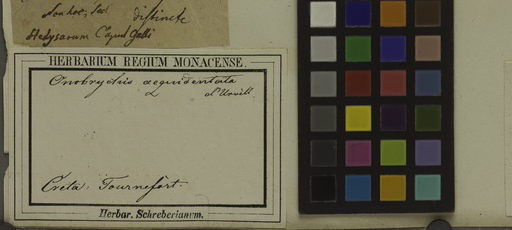 Non hoc, sed distincte
Hedysarum Caput Galli
HERBARIUM REGIUM MONACENSE.
Onobrychis aequidentata
d'Urvill.
Creta: Tournefort.
Herbar. Schreberianum.